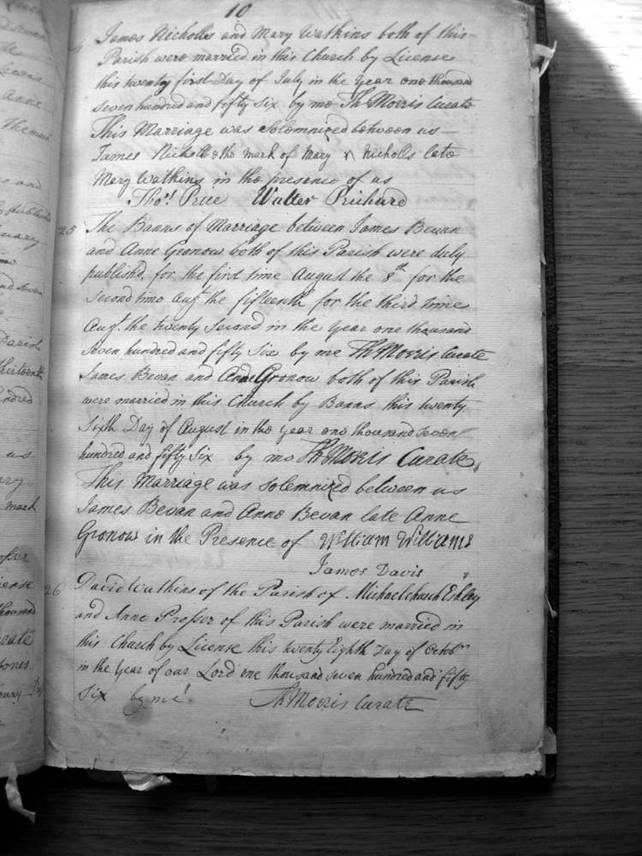 10
James Nicholls and Mary Watkins both of this
Parish were married in this Church by License
this twenty first Day of July in the Year one thousand
seven hundred and fifty six by me Th Morris Curate
This Marriage was solemnized between us
James Nicholls & the mark of Mary x Nicholls late
Mary Watkins in the presence of us
Thos Price Walter Prichard
25 The Banns of Marriage between James Bevan
and Anne Gronow both of this Parish were duly
published, for the first time August the 8th for the
Second time Augt the fifteenth for the third time
Augt. the twenty Second in the year one thousand
Seven hundred and fifty Six by me Th Morris Curate
James Bevan and Anne Gronow both of this Parish
were married in this Church by Banns this twenty
Sixth Day of August in the year one thousand seven
hundred and fifty Six by me Th Morris Curate,
This Marriage was solemnized between us
James Bevan and Anne Bevan late Anne
Gronow in the Presence of William Williams
James Davis
26 David Watkins of the Parish of Michaelchurch Eskley
and Anne Prosser of this Parish were married in
this Church by License this twenty Eighth Day of Octobr
in the Year of our Lord one thousand seven hundred and fifty
Six by me Th Morris Curate